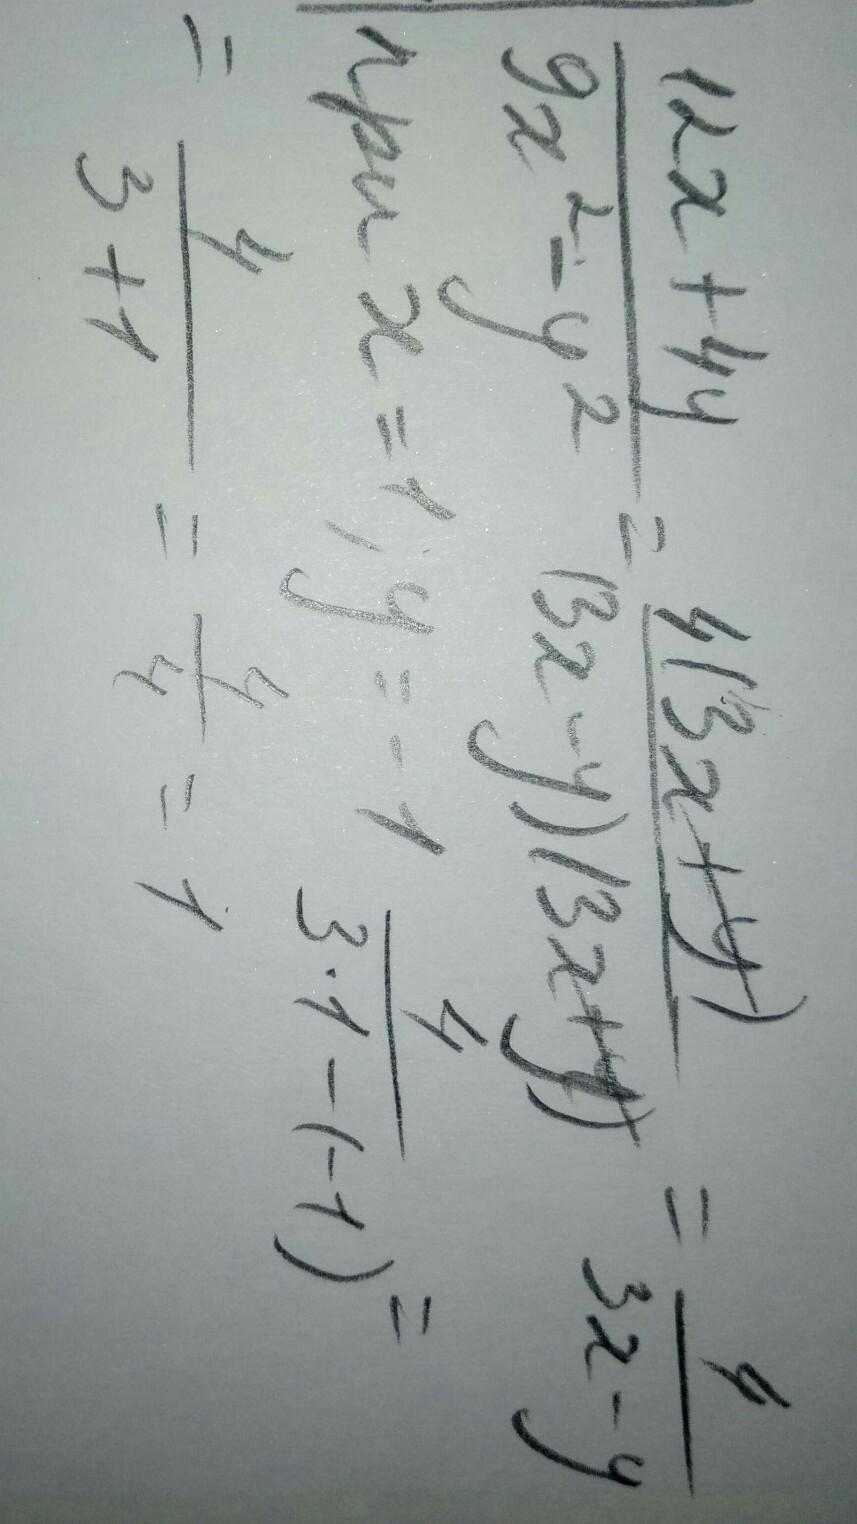 (12x+4y)/(9x²-y²) = 4(3x+y)/((3x-y)(3x+y)) = 4/(3x-y)
при x=1, y=-1 4/(3·1-(-1)) =
= 4/(3+1) = 4/4 = 1